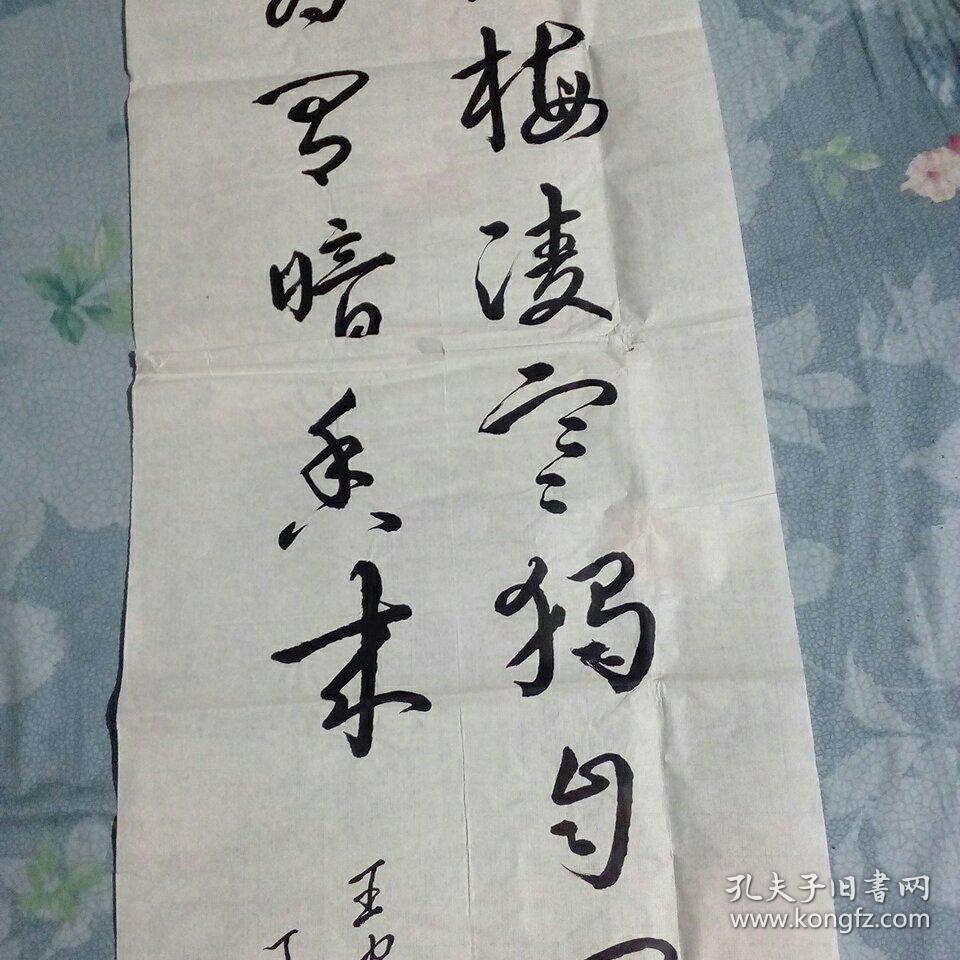 梅凌寒独自開
為有暗香来
王
丁
孔夫子旧書网
www.kongfz.com